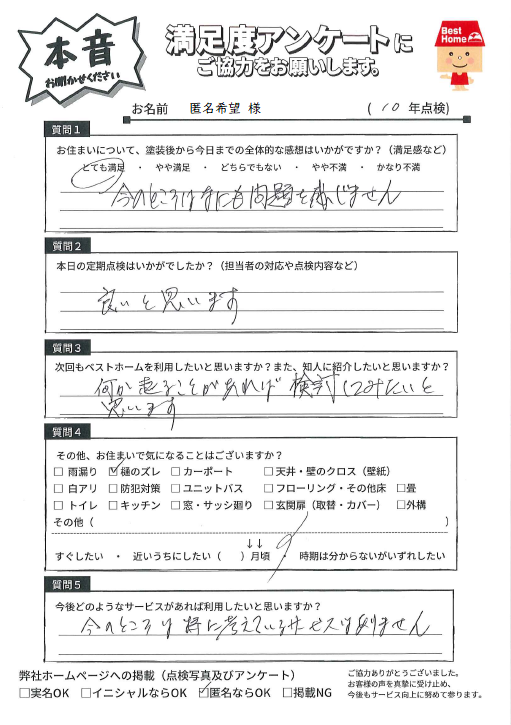 本音
お聞かせください
満足度アンケートに
ご協力をお願いします。
Best Home
お名前 匿名希望 様 (10 年点検)
質問1
お住まいについて、塗装後から今日までの全体的な感想はいかがですか？（満足感など）
とても満足 ・ やや満足 ・ どちらでもない ・ やや不満 ・ かなり不満
今のところはなにも問題を感じません
質問2
本日の定期点検はいかがでしたか？（担当者の対応や点検内容など）
良いと思います
質問3
次回もベストホームを利用したいと思いますか？また、知人に紹介したいと思いますか？
何か起ることがあれば検討してみたいと
思います
質問4
その他、お住まいで気になることはございますか？
□ 雨漏り ☑ 樋のズレ □ カーポート □ 天井・壁のクロス（壁紙）
□ 白アリ □ 防犯対策 □ ユニットバス □ フローリング・その他床 □畳
□ トイレ □ キッチン □ 窓・サッシ廻り □ 玄関扉（取替・カバー） □外構
その他（ ）
↓↓
すぐしたい ・ 近いうちにしたい（ ）月頃 ・ 時期は分からないがいずれしたい
質問5
今後どのようなサービスがあれば利用したいと思いますか？
今のところは特に考えているサービスはありません
弊社ホームページへの掲載（点検写真及びアンケート）
□実名OK □イニシャルならOK ☑匿名ならOK □掲載NG
ご協力ありがとうございました。
お客様の声を真摯に受け止め、
今後もサービス向上に努めて参ります。